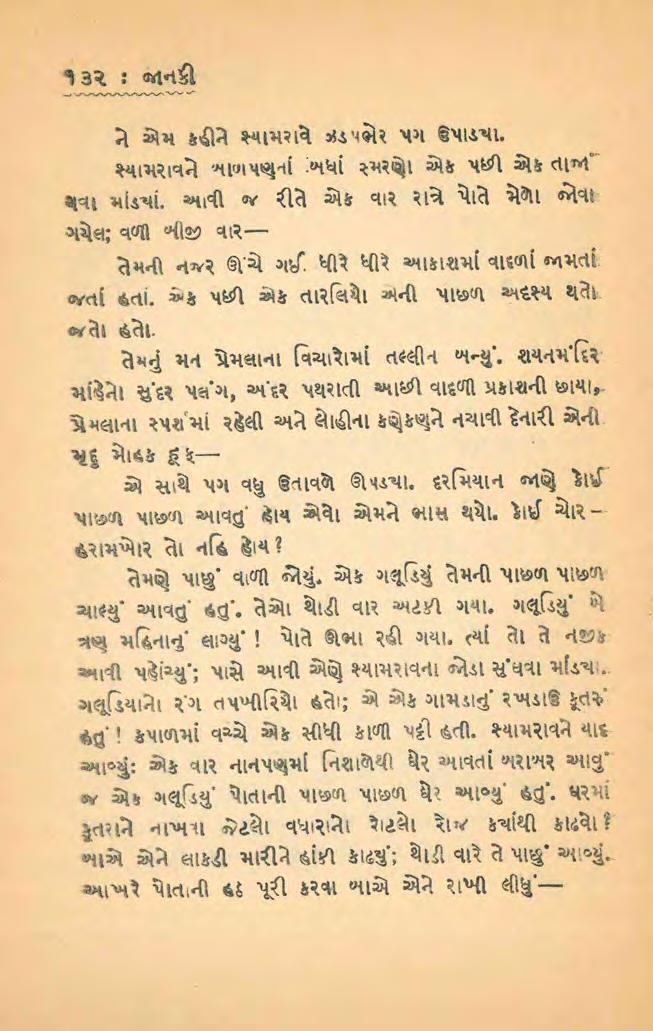 ૧૩૨ : જાનકી
ને એમ કહીને શ્યામરાવે ઝડપભેર પગ ઉપાડ્યા.
શ્યામરાવને બાળપણનાં બધાં સ્મરણો એક પછી એક તાજાં
થવા માંડ્યાં. આવી જ રીતે એક વાર રાત્રે પોતે મેળા જોવા
ગયેલ; વળી બીજી વાર—
તેમની નજર ઊંચે ગઈ. ધીરે ધીરે આકાશમાં વાદળાં જામતાં
જતાં હતાં. એક પછી એક તારલિયો એની પાછળ અદૃશ્ય થતો
જતો હતો.
તેમનું મન પ્રેમલાના વિચારોમાં તલ્લીન બન્યું. શયનમંદિર
માંહેનો સુંદર પલંગ, અંદર પથરાતી આછી વાદળી પ્રકાશની છાયા,
પ્રેમલાના સ્પર્શમાં રહેલી અને લોહીના કણેકણને નચાવી દેનારી એની
મૃદુ મોહક હૂફ—
એ સાથે પગ વધુ ઉતાવળે ઊપડ્યા. દરમિયાન જાણે કોઈ
પાછળ પાછળ આવતું હોય એવો એમને ભાસ થયો. કોઈ ચોર –
હરામખોર તો નહિ હોય?
તેમણે પાછું વાળી જોયું. એક ગલૂડિયું તેમની પાછળ પાછળ
ચાલ્યું આવતું હતું. તેઓ થોડી વાર અટકી ગયા. ગલૂડિયું બે
ત્રણ મહિનાનું લાગ્યું! પોતે ઊભા રહી ગયા. ત્યાં તો તે નજીક
આવી પહોંચ્યું; પાસે આવી એણે શ્યામરાવના જોડા સુંઘવા માંડ્યા.
ગલૂડિયાનો રંગ તપખીરિયો હતો; એ એક ગામડાનું રખડાઉ કૂતરું
હતું! કપાળમાં વચ્ચે એક સીધી કાળી પટ્ટી હતી. શ્યામરાવને યાદ
આવ્યું: એક વાર નાનપણમાં નિશાળેથી ઘેર આવતાં બરાબર આવું
જ એક ગલૂડિયું પોતાની પાછળ પાછળ ઘેર આવ્યું હતું. ઘરમાં
કૂતરાને નાખવા જેટલો વધારાનો રોટલો રોજ ક્યાંથી કાઢવો?
બાએ એને લાકડી મારીને હાંકી કાઢ્યું; થોડી વારે તે પાછું આવ્યું.
આખરે પોતાની હઠ પૂરી કરવા બાએ એને રાખી લીધું—